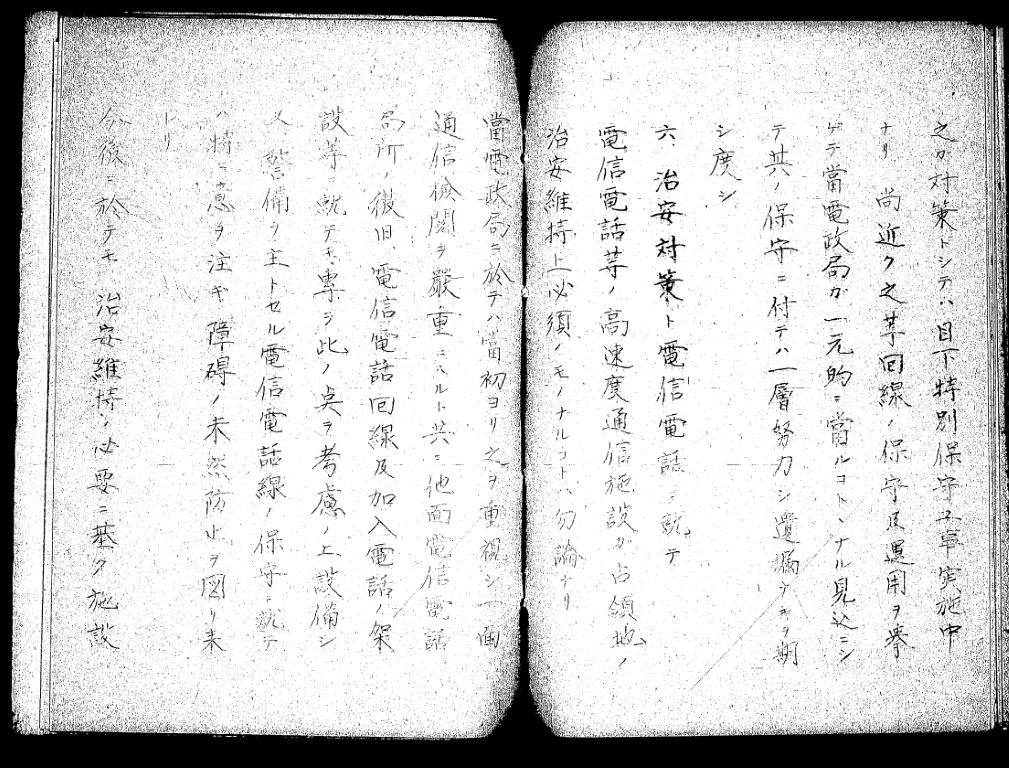 之カ対策トシテハ目下特別保守工事実施中
ナリ 尚近ク之等回線ノ保守及運用ヲ挙
ゲテ當電政局ガ一元的ニ當ルコトヽナル見込ニシ
テ其ノ保守ニ付テハ一層努力シ遺漏ナキヲ期
シ度シ
六、治安対策ト電信電話ニ就テ
電信電話等ノ高速度通信施設ガ占領地ノ
治安維持上必須ノモノナルコトハ勿論ナリ
當電政局ニ於テハ當初ヨリ之ヲ重視シ一面
通信検閲ヲ嚴重ニスルト共ニ他面電信電話
局所ノ復旧、電信電話回線及加入電話ノ架
設等ニ就テモ専ラ此ノ点ヲ考慮ノ上設備シ
又警備ヲ主トセル電信電話線ノ保守ニ就テ
ハ特ニ意ヲ注ギ障碍ノ未然防止ヲ図リ来
レリ
今後ニ於テモ治安維持ノ必要ニ基ク施設